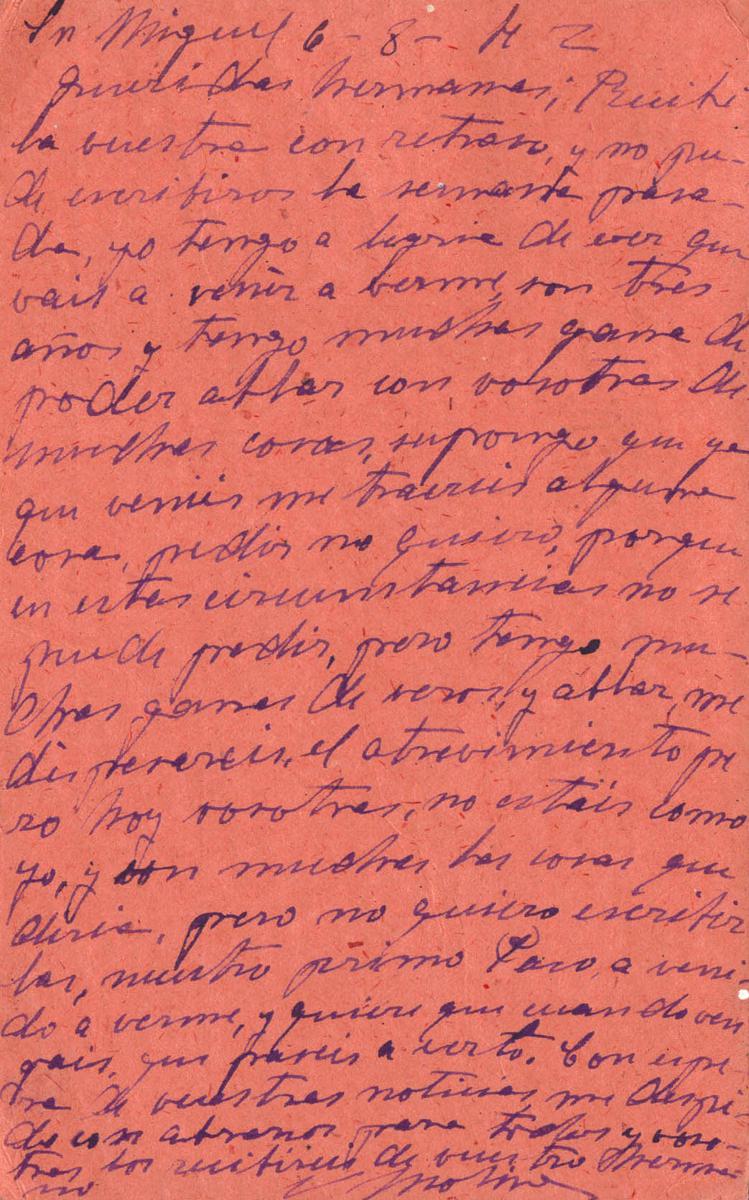 Sn Miguel 6-8-42
Queridas hermanas; Recibi
la vuestra con retraso, y no pu-
de escribiros la semana pasa-
da, yo tengo alegria de ver que
vais a venir a verme, son tres
años y tengo muchas ganas de
poder ablar con vosotras de
muchas cosas, supongo que ya
que venís me traereis alguna
cosa, pedir no quiero, porque
en estas circumstancias no se
puede pedir, pero tengo mu-
chas ganas de veros, y ablar, me
dispensareis, el atrevimiento pe
ro hoy vosotras, no estáis como
yo, y son muchas las cosas que
diria, pero no quiero escribir
las, nuestro primo Paco, a veni
do a verme, y quiere que cuando ven
gais, que paseis a verlo. Con espe-
ra de vuestras noticias me despi-
do con abrazos para todos y voso-
tras los recibireis de vuestro herma-
no Molina